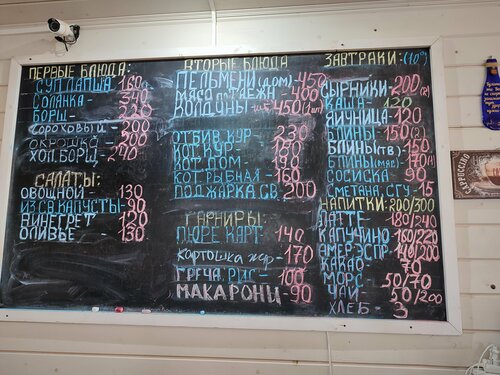 ПЕРВЫЕ БЛЮДА:
СУП ЛАПША 160
СОЛЯНКА - 340
БОРЩ
ГОРОХОВЫЙ 200
ОКРОШКА 200
ХОЛ. БОРЩ. 240
САЛАТЫ:
ОВОЩНОЙ 130
ИЗ СВ. КАПУСТЫ - 90
ВИНЕГРЕТ 120
ОЛИВЬЕ 130
ВТОРЫЕ БЛЮДА
ПЕЛЬМЕНИ (ДОМ) - 450
МЯСО 400
КОЛДУНЫ 450
ОТБИВ. КУР. 230
КОТ. КУР. 190
КОТ. ДОМ. 190
КОТ. РЫБНАЯ 160
ПОДЖАРКА СВ. 200
ГАРНИРЫ:
ПЮРЕ КАРТ. 140
КАРТОШКА жар - 170
ГРЕЧА, РИС - 100
МАКАРОНИ - 90
ЗАВТРАКИ:
СЫРНИКИ - 200
КАША - 120
ЯИЧНИЦА 120
БЛИНЫ 150
БЛИНЫ (ТВ) 150
БЛИНЫ 170
СОСИСКА 90
СМЕТАНА, СГУ - 15
НАПИТКИ: 200/300
ЛАТТЕ 180/240
КАПУЧИНО 160/220
АМЕР. ЭСПР. 140/200
КАКАО 70
МОРС 50/70
ЧАЙ 50/200
ХЛЕБ - 3